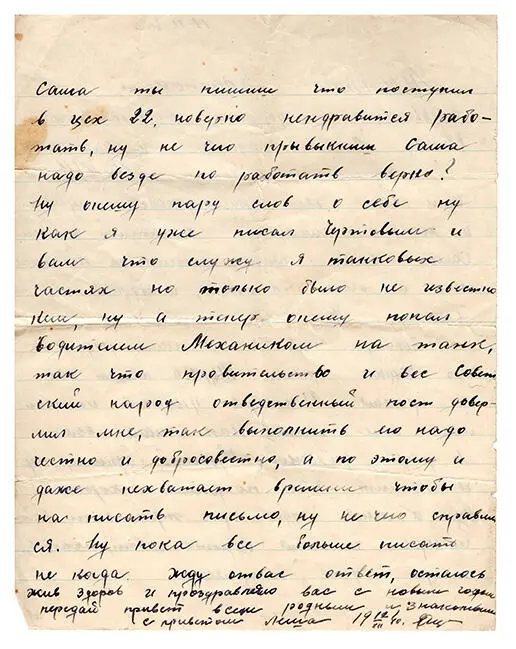 Саша ты пишиш что поступил
в цех 22. новерно ненравится рабо-
тать, ну не чего прывыкниш Саша
надо везде по работать верно?
Ну опешу пару слов о себе ну
как я уже писал Чертовым и
вам что служу я танковых
частях но только было не известно
кем, ну а тепер опешу попал
водителем Механиком на танк,
так что правительство и вес Совет
ский народ отведственный пост довер-
мил мне, так выполнить его надо
честно и добросовестно, а по этому и
даже нехватает времини чтобы
на писать письмо, ну не чего справим
ся. Ну пока все больше писать
не когда. Жду отвас ответ, осталось
жив здоров и проздравляю вас с новым годом
передай привет всем родным и знакомым
с приветом Леша 19 12/XII 40.